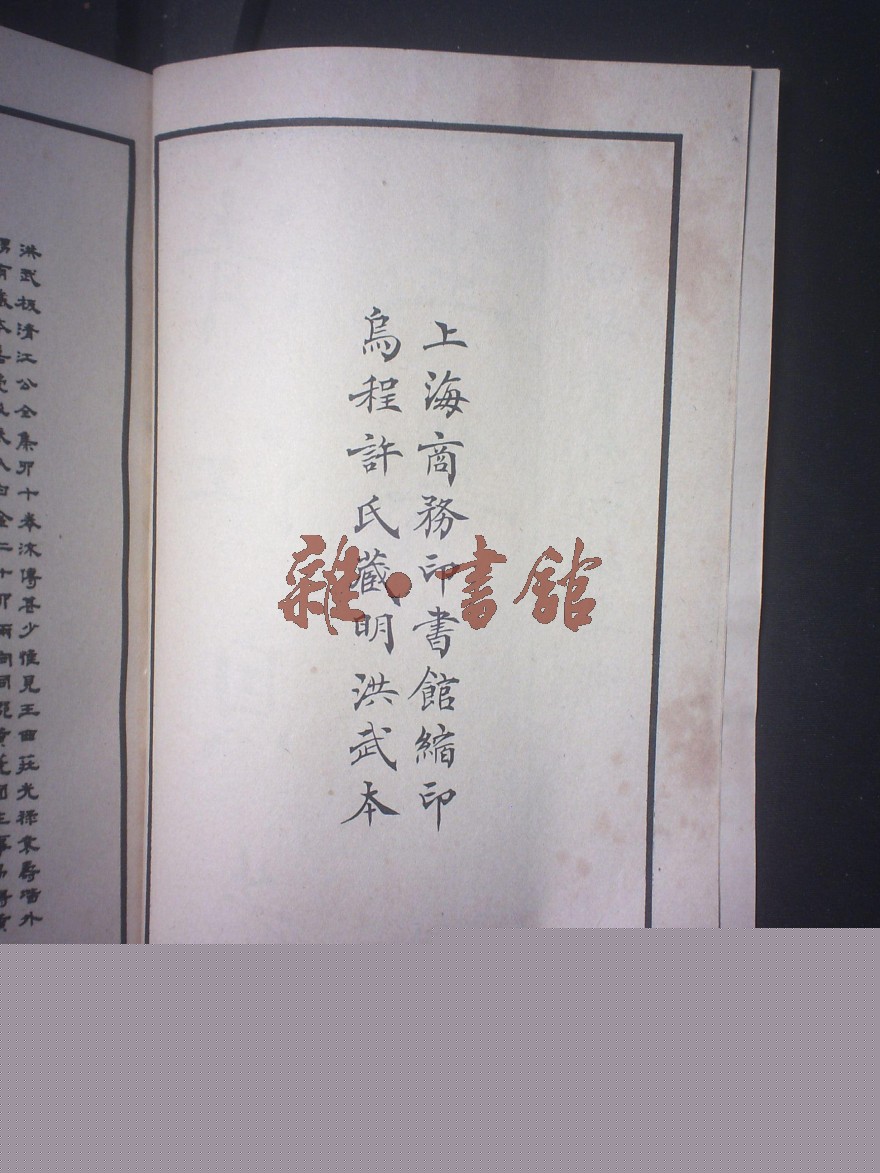 上海商務印書館縮印
烏程許氏藏明洪武本
雜·書館
洪武板清江公全集卅十卷沭傳甚少惟見王田莊光祿家壽堦外